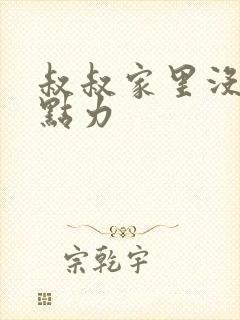 叔叔家里没
點力
宗乾宇